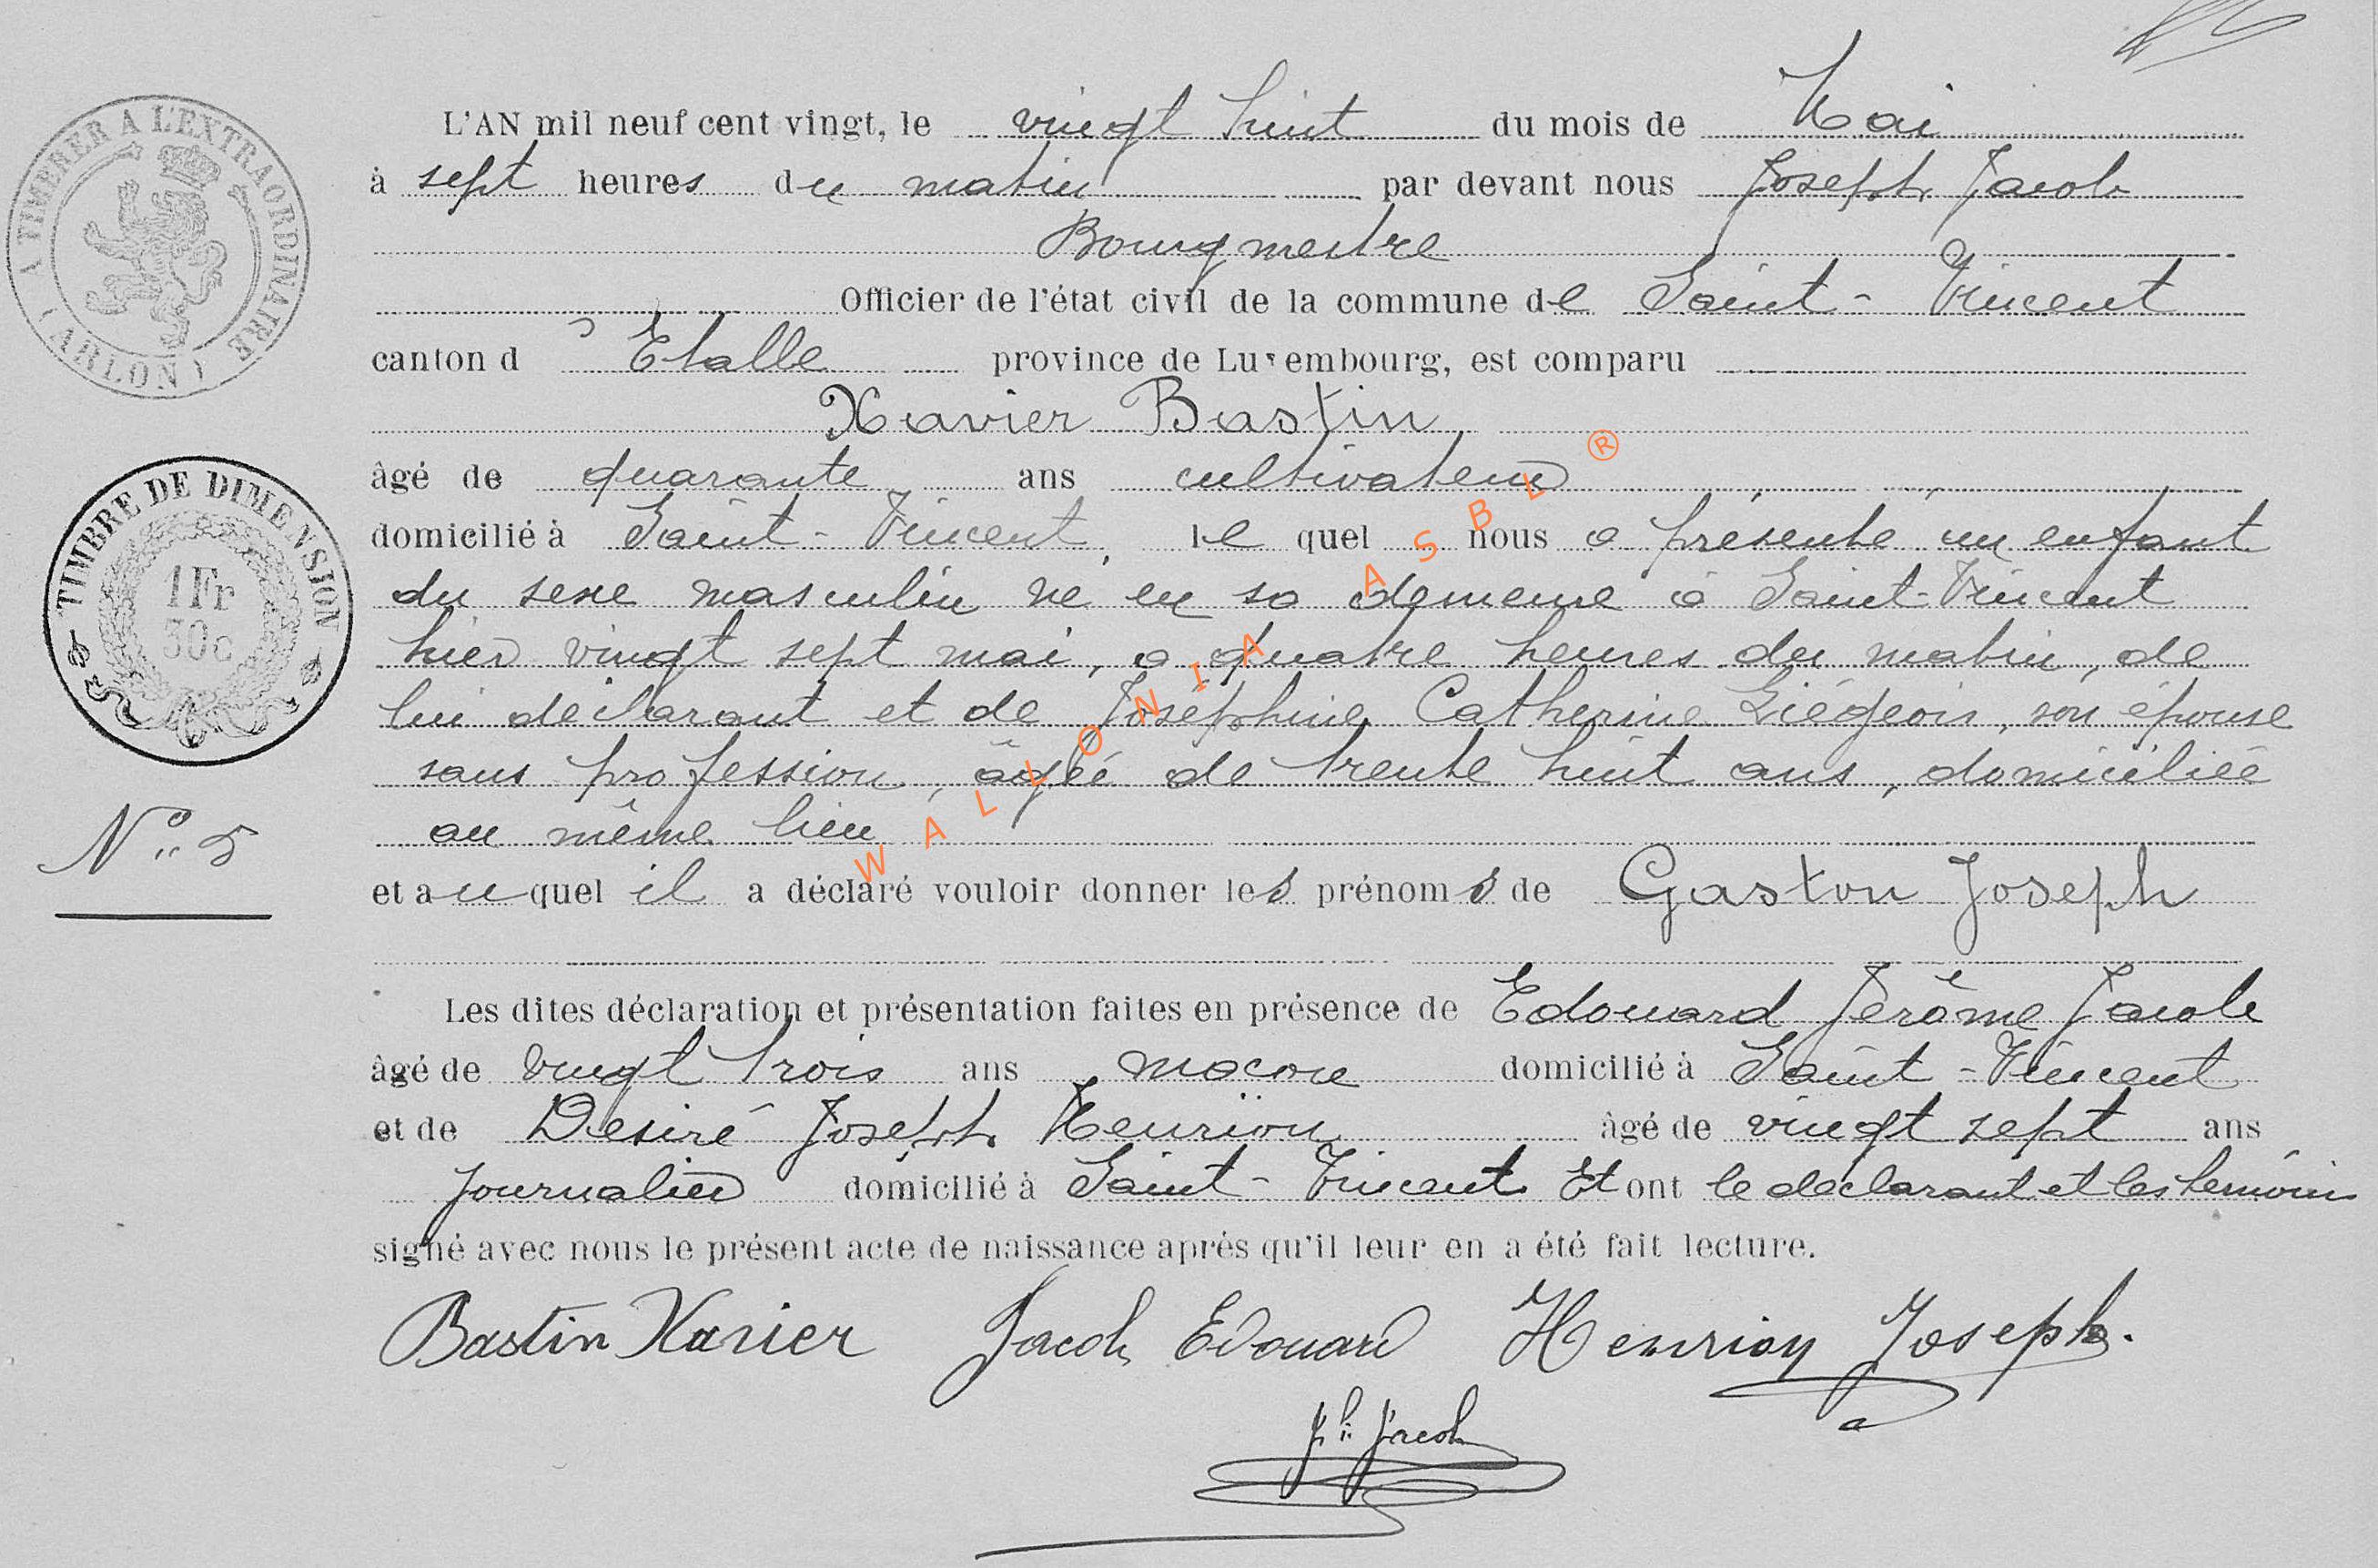 L'AN mil neuf cent vingt, le vingt huit du mois de Mai
à sept heures du matin par devant nous Joseph Jacob
Bourgmestre
Officier de l'état civil de la commune de Saint-Vincent
canton d'Etalle province de Luxembourg, est comparu
Xavier Bastin
âgé de quarante ans cultivateur
domicilié à Saint-Vincent, le quel nous a présenté un enfant
du sexe masculin né en sa demeure à Saint-Vincent
hier vingt sept mai, à quatre heures du matin, de
lui déclarant et de Joséphine Catherine Liégeois, son épouse
sans profession, âgée de trente huit ans, domiciliée
au même lieu
et auquel il a déclaré vouloir donner les prénoms de Gaston Joseph
Les dites déclaration et présentation faites en présence de Edouard Jérôme Jacob
âgé de vingt trois ans maçon domicilié à Saint-Vincent
et de Desiré Joseph Henrion âgé de vingt sept ans
journalier domicilié à Saint-Vincent Et ont le déclarant et les témoins
signé avec nous le présent acte de naissance après qu'il leur en a été fait lecture.
Bastin Xavier Jacob Edouard Henrion Joseph.
Jh Jacob
A TIMBRER A L'EXTRAORDINAIRE
(ARLON)
TIMBRE DE DIMENSION
1Fr
30c
No 5
WALLONIA ASBL ®